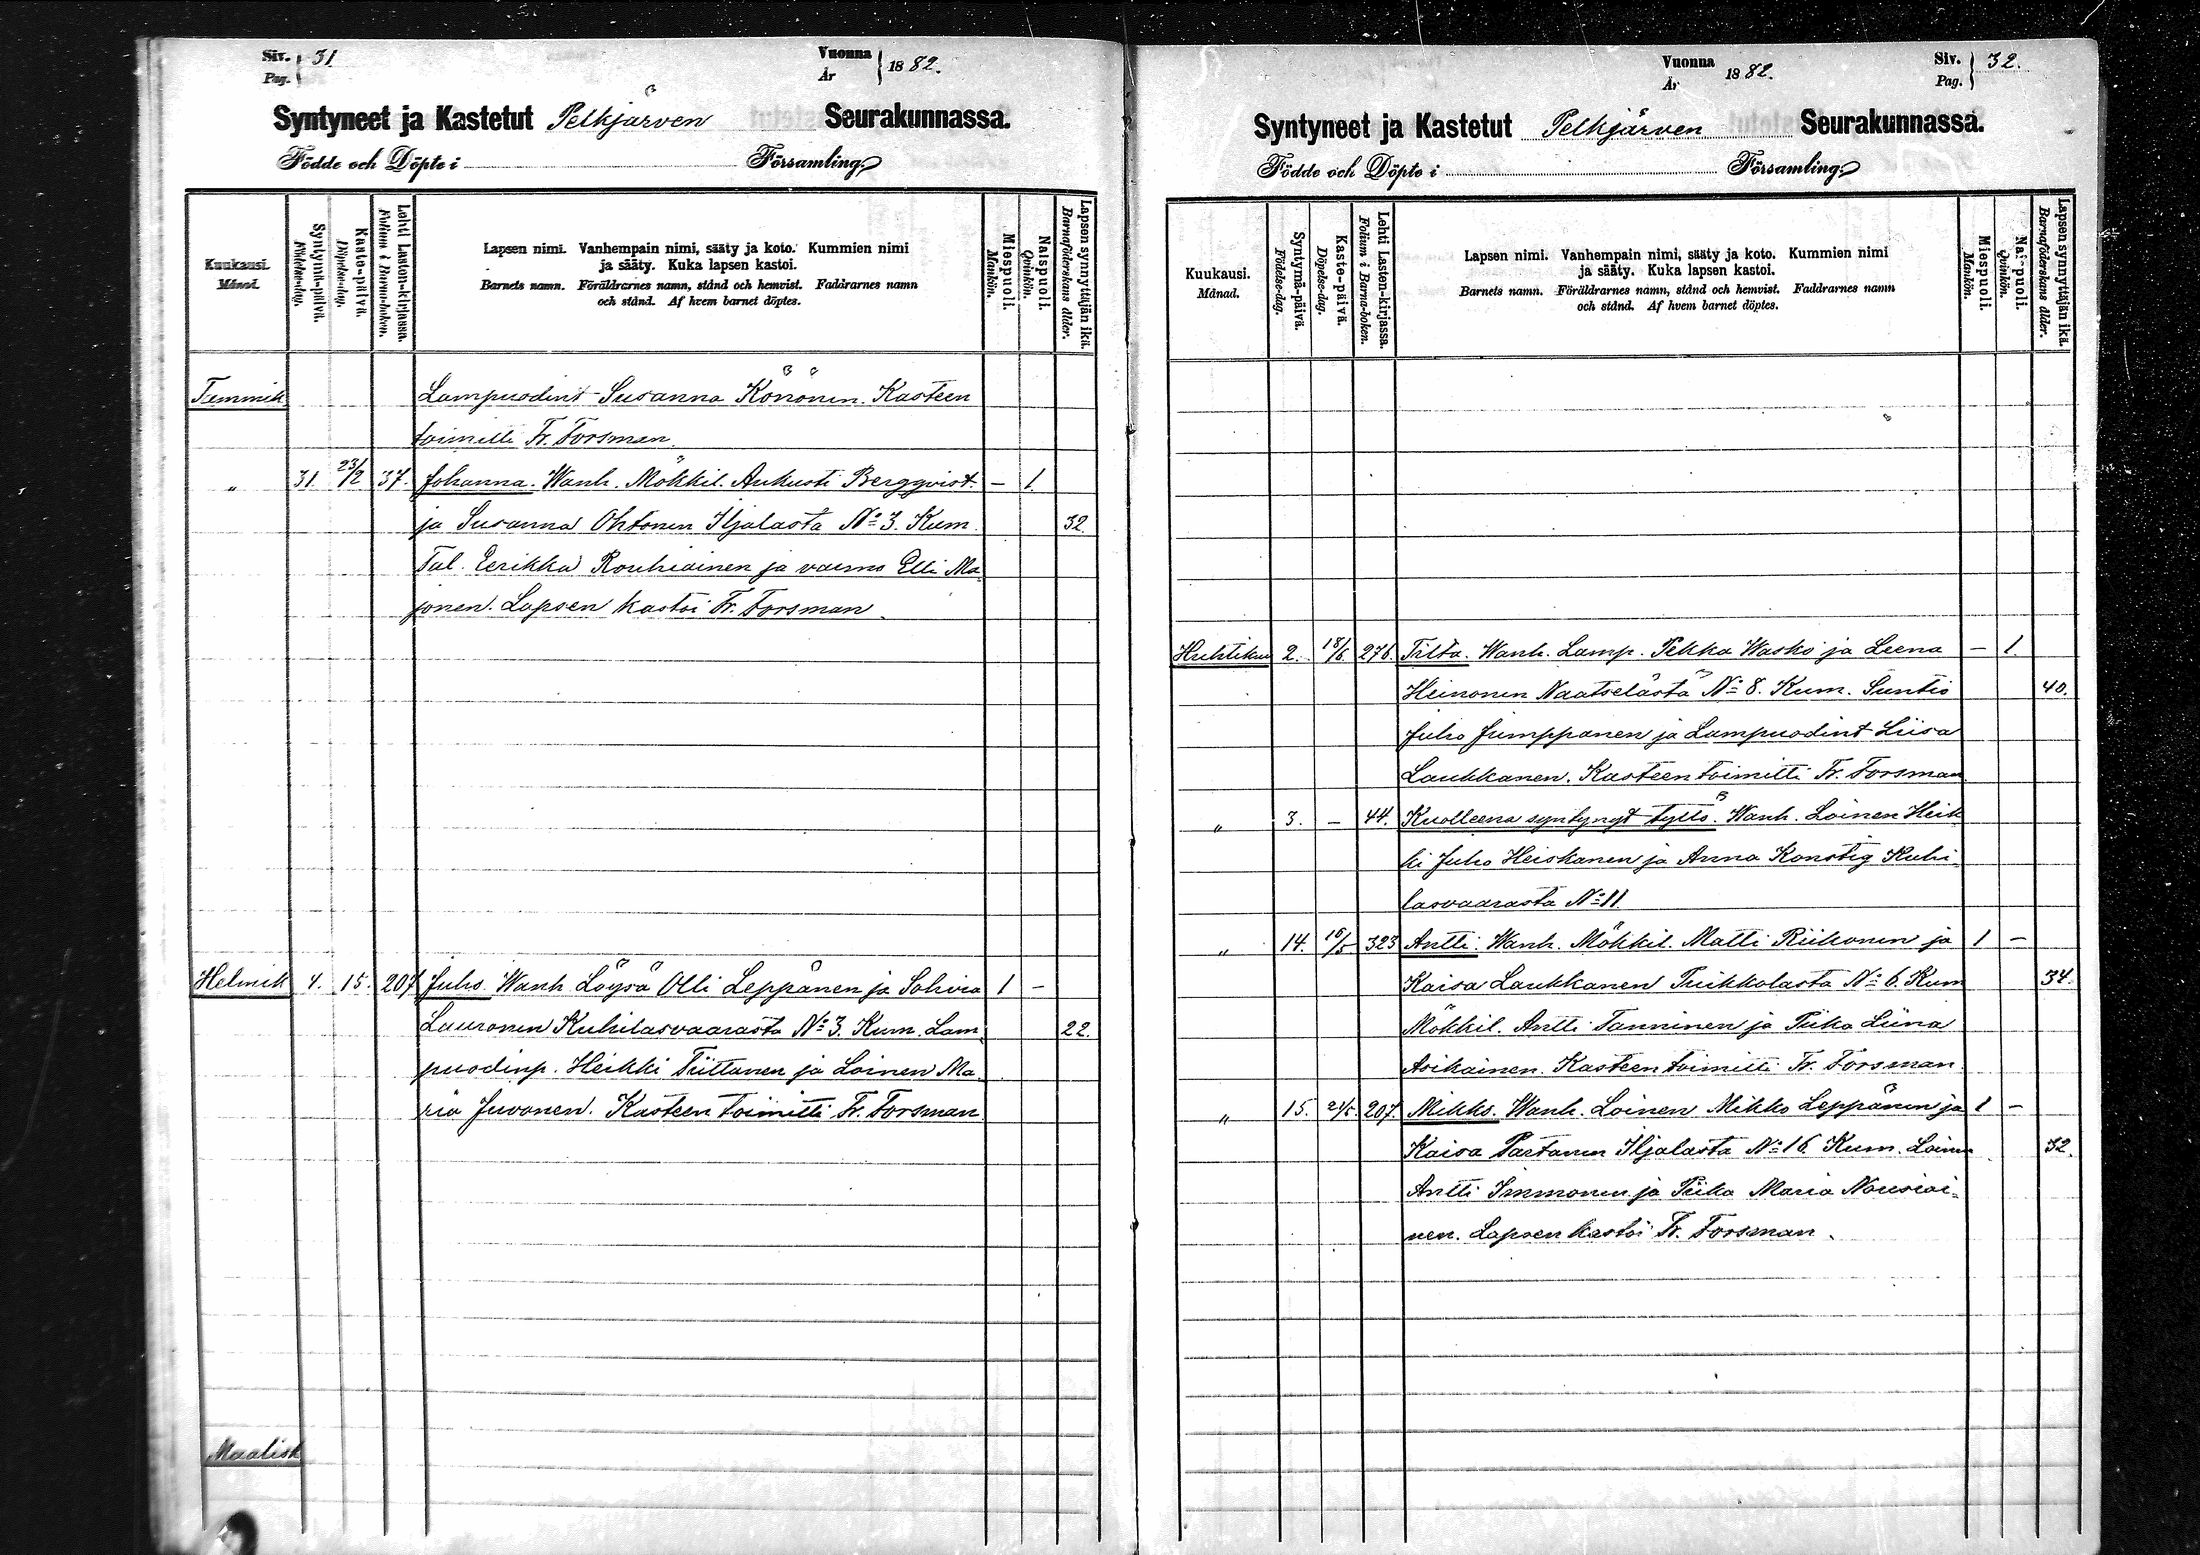 Siv. 31
Pag.
Vuonna
År 1882.
Syntyneet ja Kastetut Pelkjärven Seurakunnassa.
Födde och Döpte i Församling.
Kuukausi.
Månad.
Syntymä-päivä.
Födelse-dag.
Kaste-päivä.
Döpelse-dag.
Lehti Lasten-kirjassa.
Folium i Barna-boken.
Lapsen nimi. Vanhempain nimi, sääty ja koto. Kummien nimi
ja sääty. Kuka lapsen kastoi.
Barnets namn. Föräldrarnes namn, stånd och hemvist. Faddrarnes namn
och stånd. Af hvem barnet döptes.
Miespuoli.
Mankön.
Naispuoli.
Qvinkön.
Lapsen synnyttäjän ikä.
Barnaföderskans ålder.
Tammik Lampuodint Susanna Könönen. Kasteen
toimitti Fr. Forsman.
" 31. 23/2 37. Johanna. Wanh. Mökkil. Aukusti Bergqvist - 1.
ja Susanna Ohtonen Iljalasta No 3. Kum. 32.
Tal. Eerikka Rouhiainen ja vaimo Elli Ma
jonen. Lapsen kastoi Fr. Forsman.
Helmik 4. 15. 207 Juho. Wanh Löysä Olli Leppänen ja Sohvia 1 -
Lauronen Kuhilasvaarasta No 3. Kum. Lam 22.
puodinp. Heikki Tiittanen ja Loinen Ma
ria Juvonen. Kasteen toimitti Fr. Forsman
Maalisk
Vuonna
År 1882.
Siv. 32.
Pag.
Syntyneet ja Kastetut Pelkjärven Seurakunnassa.
Födde och Döpte i Församling.
Kuukausi.
Månad.
Syntymä-päivä.
Födelse-dag.
Kaste-päivä.
Döpelse-dag.
Lehti Lasten-kirjassa.
Folium i Barna-boken.
Lapsen nimi. Vanhempain nimi, sääty ja koto. Kummien nimi
ja sääty. Kuka lapsen kastoi.
Barnets namn. Föräldrarnes namn, stånd och hemvist. Faddrarnes namn
och stånd. Af hvem barnet döptes.
Miespuoli.
Mankön.
Naispuoli.
Qvinkön.
Lapsen synnyttäjän ikä.
Barnaföderskans ålder.
Huhtikuu 2. 18/6. 276. Tilta. Wanh. Lamp. Pekka Wasko ja Leena - 1.
Heinonen Naatselästä No 8. Kum. Suntio 40.
Juho Jumppanen ja Lampuodint Liisa
Laukkanen. Kasteen toimitti Fr. Forsman
" 3. - 44. Kuolleena syntynyt tyttö. Wanh. Loinen Heik
ki Juho Heiskanen ja Anna Konstig Kuhi-
lasvaarasta No 11.
" 14. 16/5 323 Antti. Wanh. Mökkil. Matti Riikonen ja 1 -
Kaisa Laukkanen Puikkolasta No 6. Kum 34.
Mökkil. Antti Tanninen ja Piika Liina
Asikainen. Kasteen toimitti Fr. Forsman.
" 15. 21/5. 207. Mikko. Wanh. Loinen Mikko Leppänen ja 1 -
Kaisa Partanen Iljalasta No 16. Kum. Loinen 32.
Antti Immonen ja Piika Maria Nousiai-
nen. Lapsen kastoi Fr. Forsman.